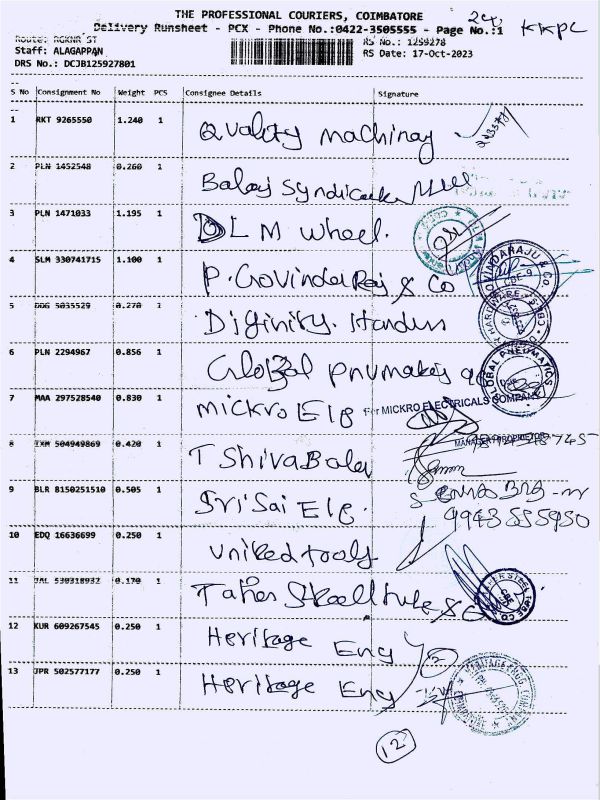 THE PROFESSIONAL COURIERS, COIMBATORE
Delivery Runsheet - PCX - Phone No.:0422-3505555 - Page No.:1
KKPC
Route: RGKNR ST
RS No.: 1259278
Staff: ALAGAPPAN
RS Date: 17-Oct-2023
DRS No.: DCJB125927801
S No Consignment No Weight PCS Consignee Details Signature
1 RKT 9265550 1.240 1 Quality machinay
2 PLN 1452548 0.260 1 Balaj Syndicate
3 PLN 1471033 1.195 1 DLM Wheel.
4 SLM 330741715 1.100 1 P. GovindaRaj & Co
5 GGG 5035529 0.270 1 Diginity. Handus
6 PLN 2294967 0.856 1 Global pnumakis
7 MAA 297528540 0.830 1 mickro Ele For MICKRO ELECTRICALS COMPANY
8 IXM 504949869 0.420 1 T ShivaBala
9 BLR 8150251510 0.505 1 Sri Sai Ele.
9943555950
10 EDQ 16636699 0.250 1 united tools
11 JAL 530318932 0.170 1 Taher Steel tube & Co
12 KUR 609267545 0.250 1 Heritage Eng
13 JPR 502577177 0.250 1 Heritage Eng
12